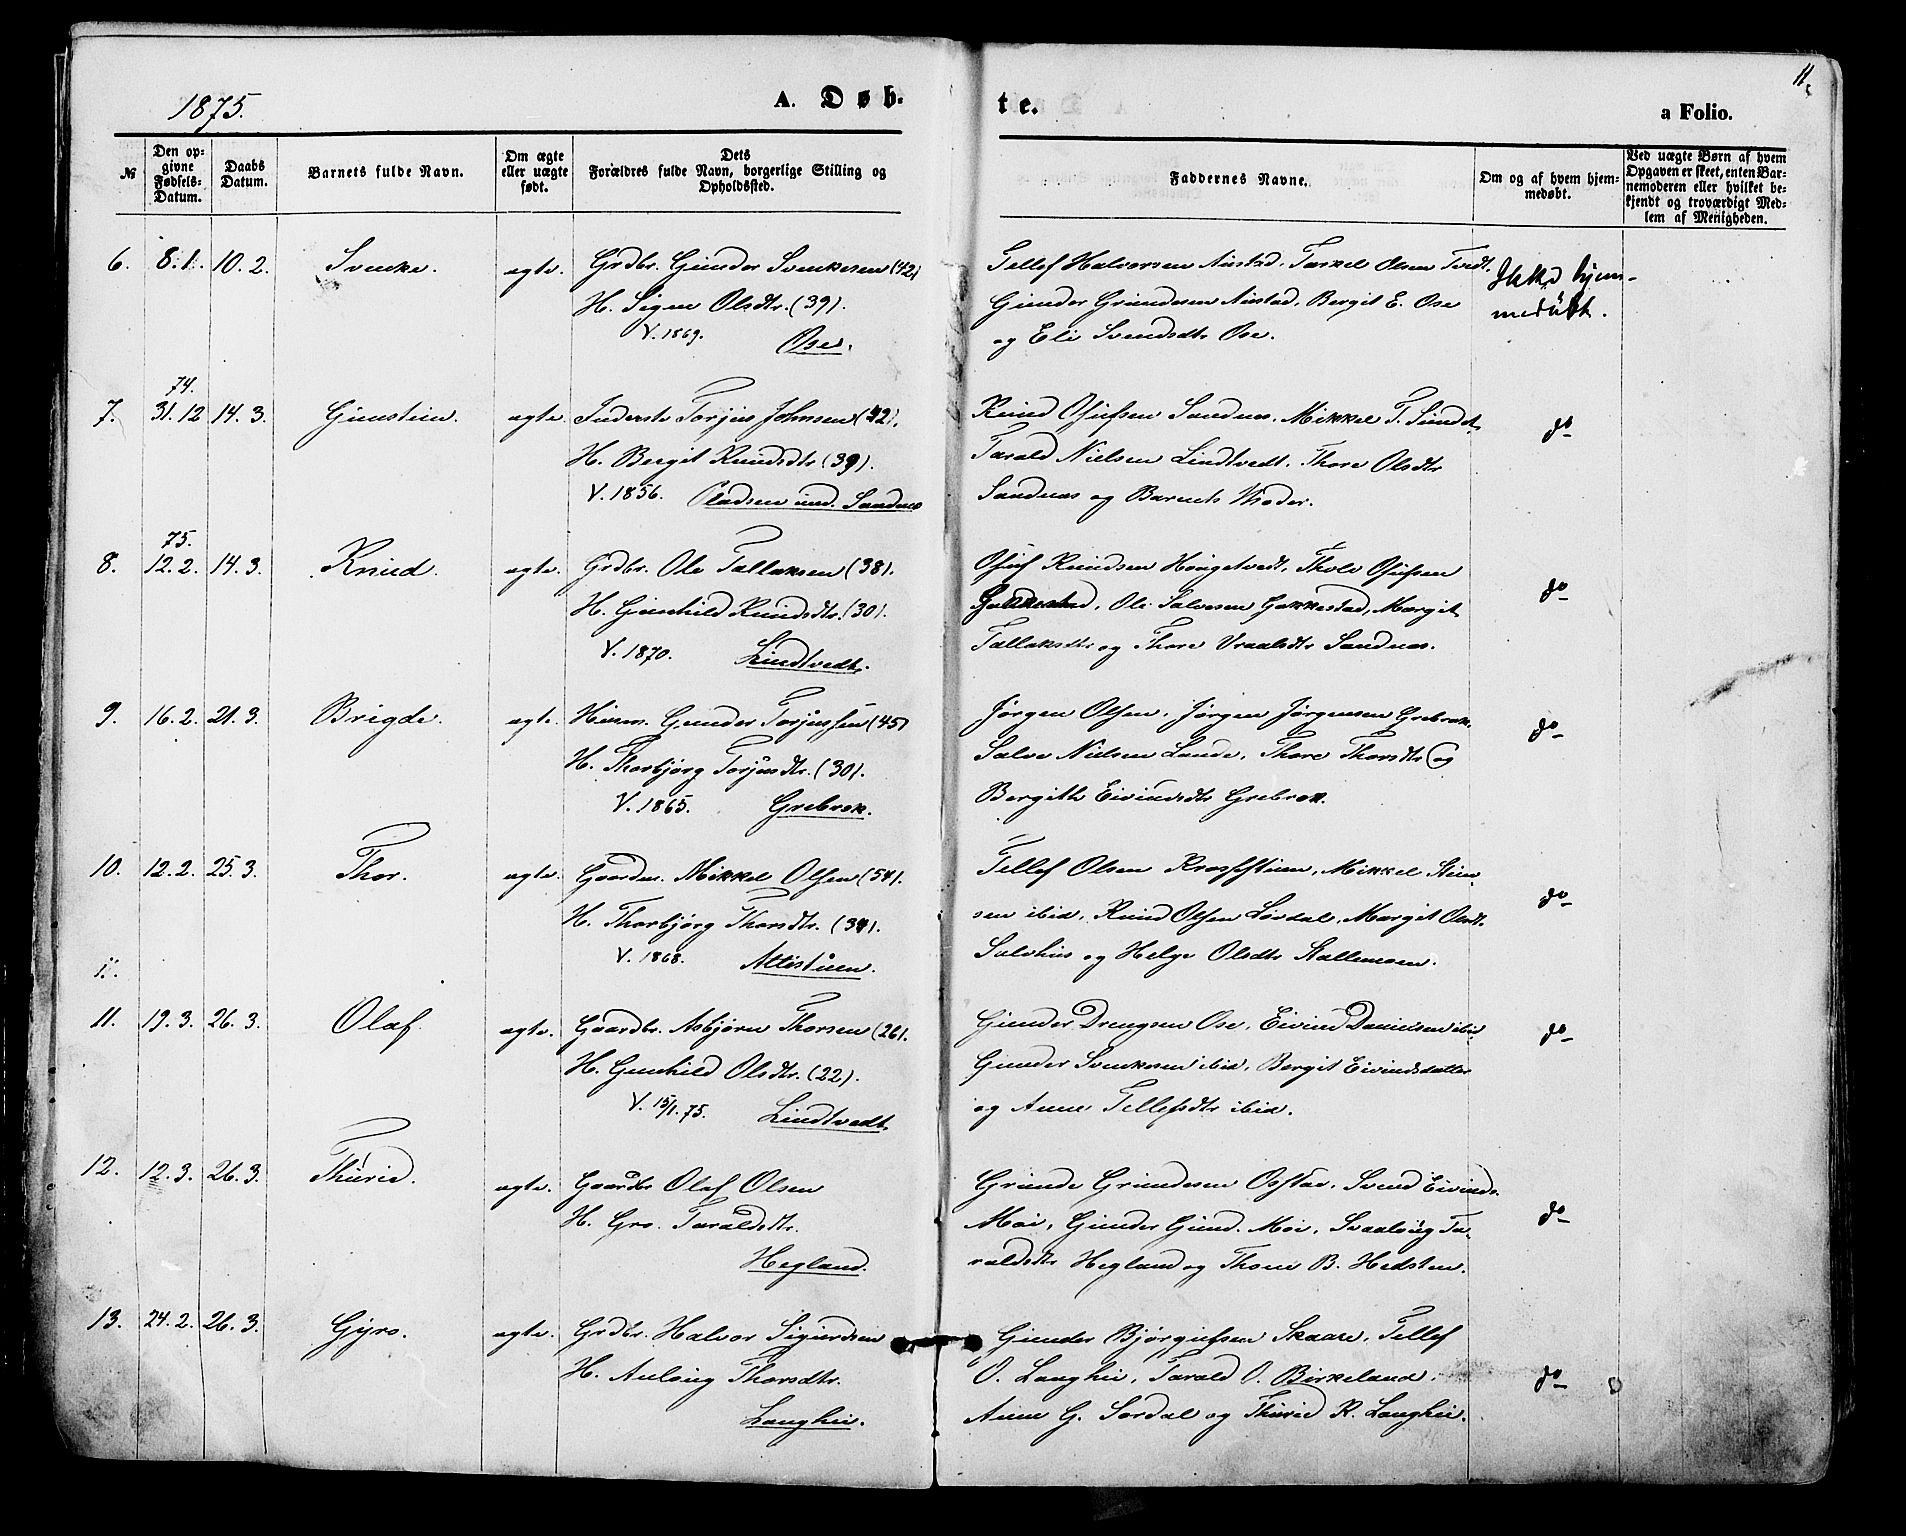 11
1875.
A. Døb-
te.
a Folio.
№
Den op-
givne
Fødsels-
Datum.
Daabs
Datum.
Barnets fulde Navn.
Om ægte
eller uægte
født.
Dets
Forældres fulde Navn, borgerlige Stilling og
Opholdssted.
Faddernes Navne.
Om og af hvem hjem-
medøbt.
Ved uægte Børn af hvem
Opgaven er skeet, enten Bar-
nemoderen eller hvilket be-
kjendt og troværdigt Med-
lem af Menigheden.
6. 8.1. 10.2. Svenke. ægte. Grdbr. Gunder Svenkesen (42)
H. Signe Olsdtr. (39).
V. 1869. Ose.
Tellef Halvorsen Austad, Tarkel Olsen Tvedt,
Gunder Grundesen Austad, Bergit E. Ose
og Eli Svendsdtr Ose.
Ikke hjem-
medøbt.
74.
7. 31.12 14.3. Gunstein. ægte. Inderste Torjus Johnsen (42).
H. Bergit Knudsdtr (39).
V. 1856. Pladsen und. Sandnes
Knud Osufsen Sandnes, Mikkel T. Sundt,
Tarald Nielsen Lindtvedt, Thore Olsdtr
Sandnæs og Barnets Moder.
do
75.
8. 12.2. 14.3. Knud. ægte. Grdbr. Ole Tallaksen (38).
H. Gunhild Knudsdtr. (30).
V. 1870. Lindtvedt.
Osuf Knudsen Haugetvedt, Thole Osufsen
Gakkestad, Ole Salvesen Gakkestad, Margit
Tallaksdtr og Thore Vraalsdtr Sandnæs.
do
9. 16.2. 21.3. Brigde. ægte. Huusm. Gunder Torjussen (45)
H. Thorbjørg Torjusdtr. (30).
V. 1865. Grebrok.
Jørgen Olsen, Jørgen Jørgensen Grebrok,
Salve Nielsen Lande, Thore Thorsdtr og
Bergith Eivindsdtr Grebrok.
do
10. 12.2. 25.3. Thor. ægte. Gaardm. Mikkel Olsen (54).
H. Thorbjørg Thorsdtr. (39).
V. 1868. Allistuen.
Tellef Olsen Krosstuen, Mikkel Stein-
sen ibid, Knud Olsen Løvdal, Margit Olsdt.
Solohus og Helge Olsdtr Stallemoen.
do
11.
11. 19.3. 26.3. Olaf. ægte. Gaardbr. Asbjørn Thorsen (26).
H. Gunhild Olsdtr. (22).
V. 15/1. 75. Lindtvedt
Gunder Drengsen Ose, Eivind Danielsen ibid,
Gunder Svenkesen ibid, Bergit Eivindsdatter
og Anne Tellefsdtr ibid.
do
12. 12.3. 26.3. Thurid. ægte. Gaardbr Olaf Olsen
H. Gro Taraldsdtr.
Hegland.
Grunde Grundesen Ogstad, Svend Eivinds.
Moi, Gunder Gund. Moi, Svaalaug Ta-
raldsdtr Hegland og Thone B. Hedsten.
do
13. 24.2. 26.3. Gyro. ægte. Grdbr. Halvor Sigurdsen
H. Aslaug Thorsdtr.
Langhei.
Gunder Bjørgufsen Skaare, Tellef
O. Langhei, Tarald O. Birkeland,
Anne G. Sordal og Thurid K. Langhei.
do